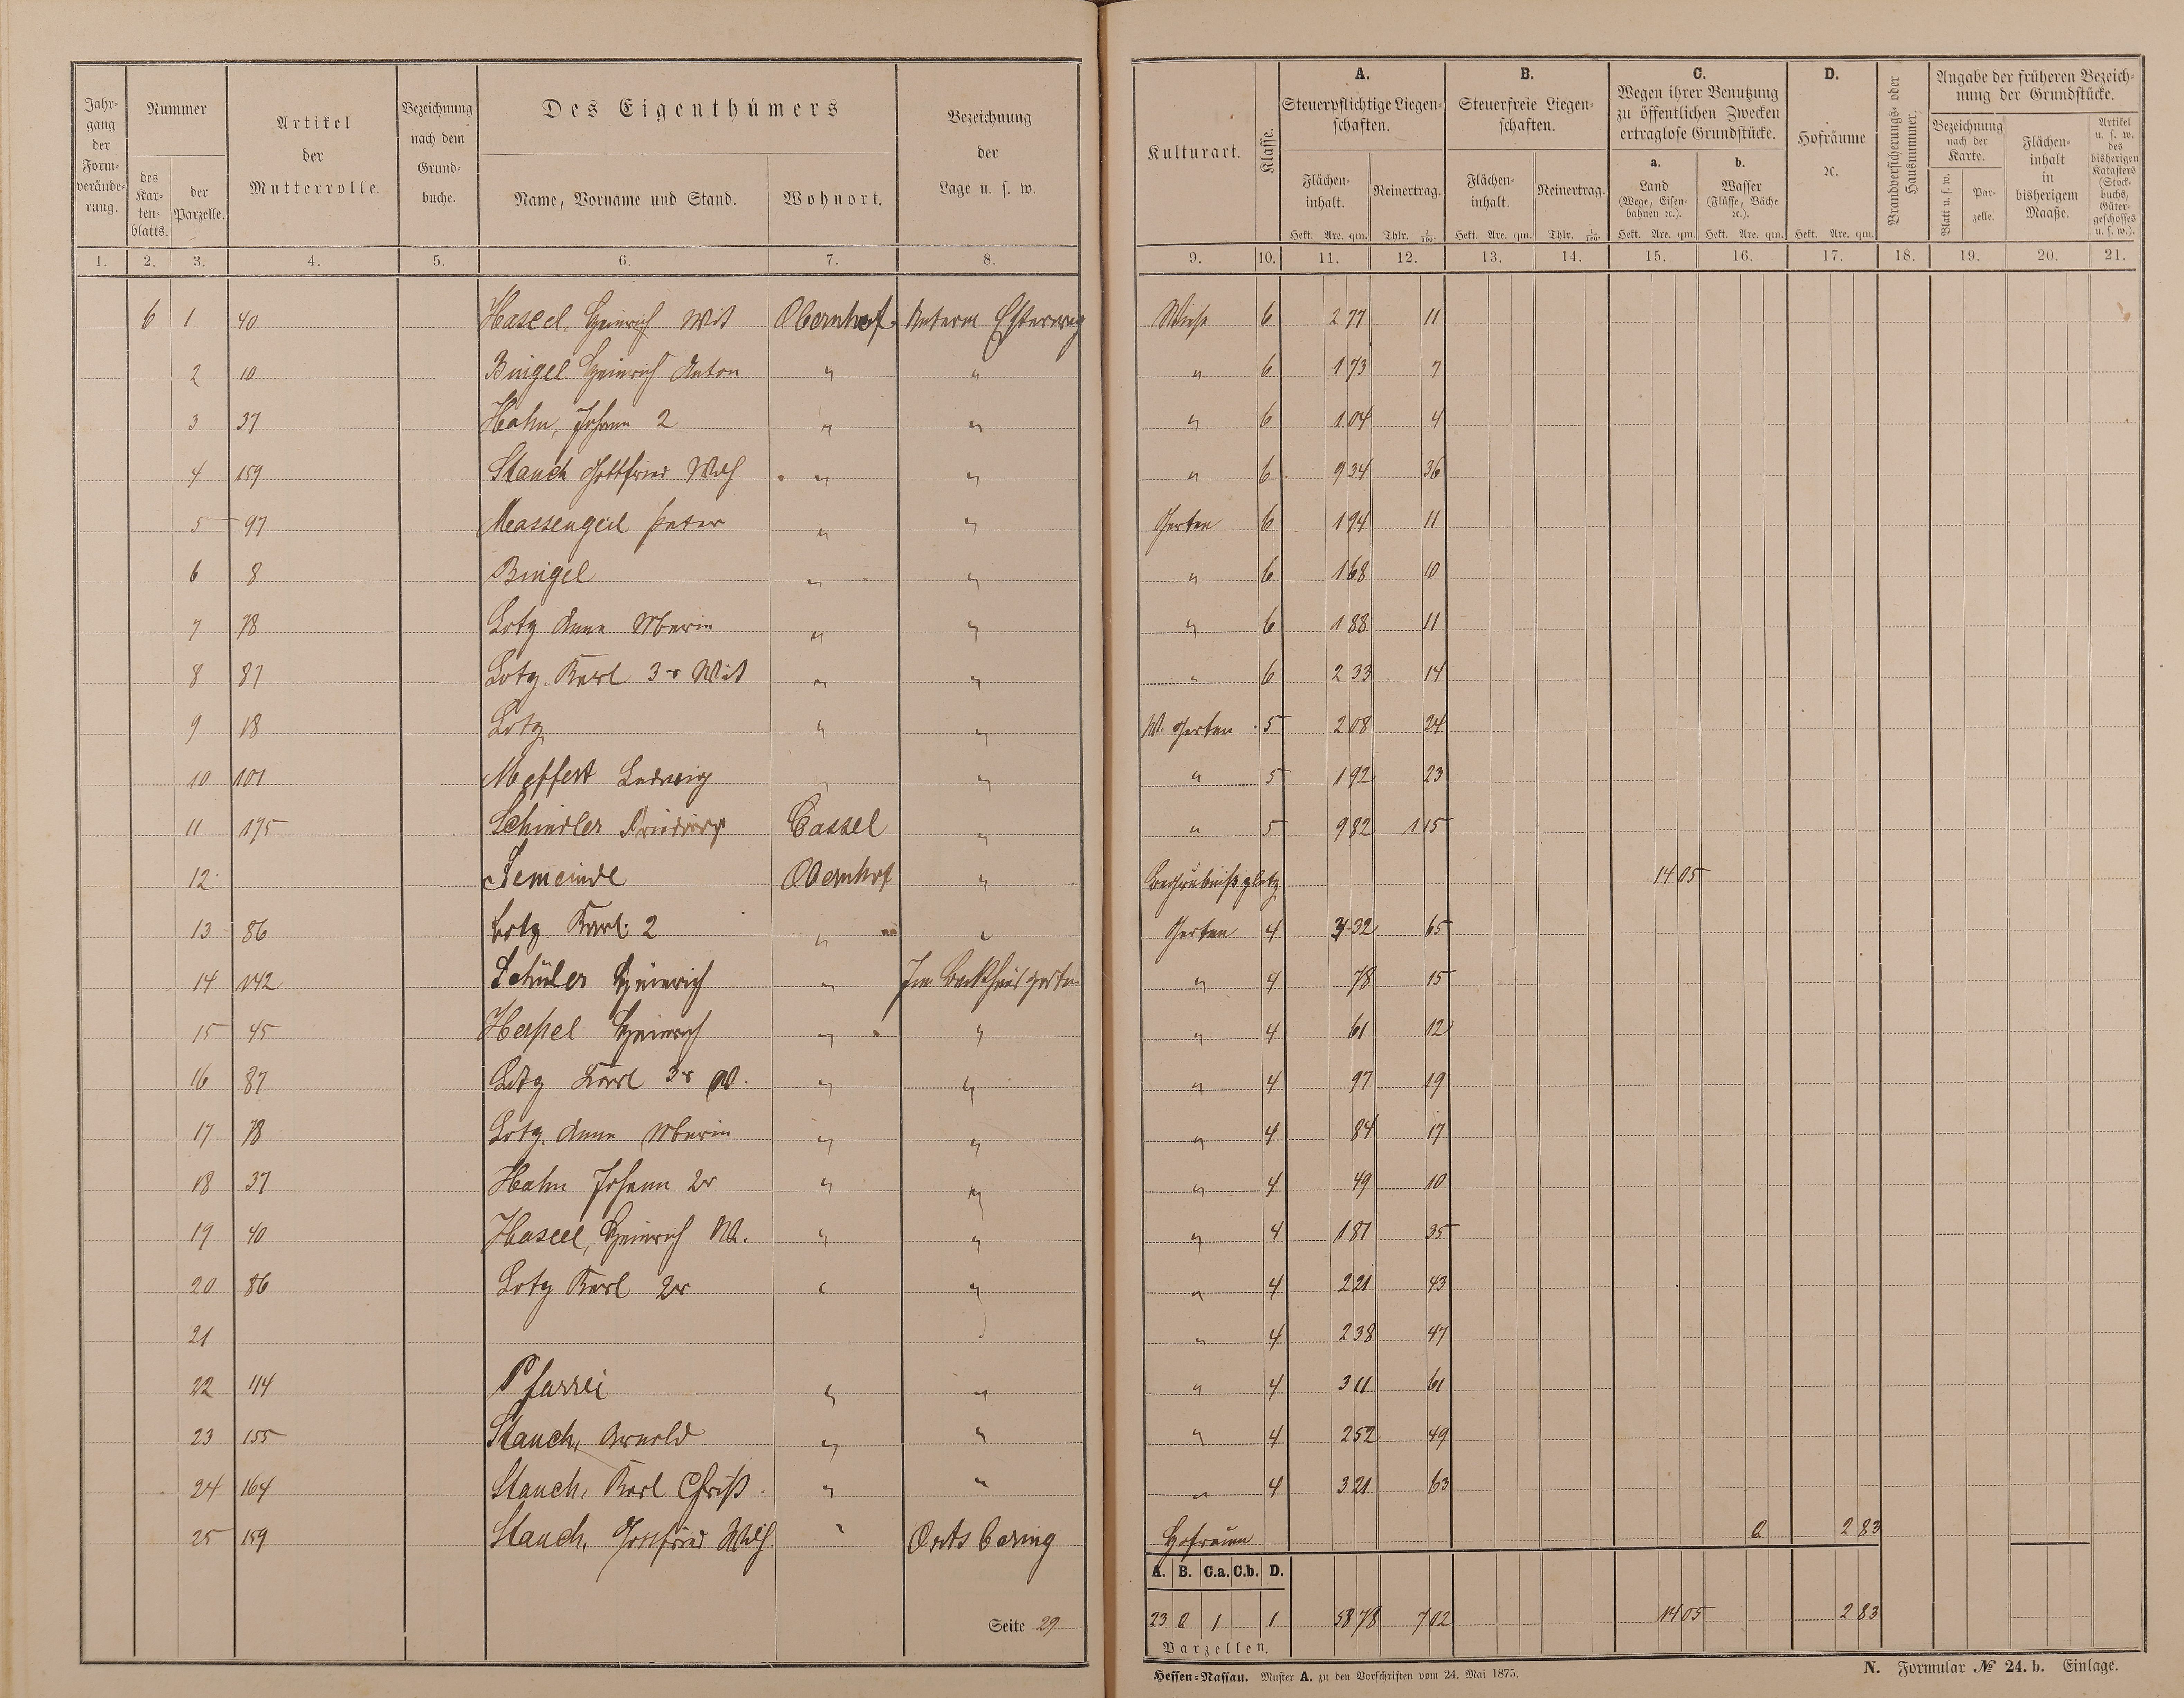 Jahrgang der Formveränderung.
Nummer
des Kartenblatts.
der Parzelle.
Artikel der Mutterrolle.
Bezeichnung nach dem Grundbuche.
Des Eigenthümers
Name, Vorname und Stand.
Wohnort.
Bezeichnung der Lage u. s. w.
Kulturart.
Klasse.
A. Steuerpflichtige Liegenschaften.
Flächeninhalt. Hekt. Are. qm.
Reinertrag. Thlr. 1/100.
B. Steuerfreie Liegenschaften.
Flächeninhalt. Hekt. Are. qm.
Reinertrag. Thlr. 1/100.
C. Wegen ihrer Benutzung zu öffentlichen Zwecken ertraglose Grundstücke.
a. Land (Wege, Eisenbahnen ꝛc.). Hekt. Are. qm.
b. Wasser (Flüsse, Bäche ꝛc.). Hekt. Are. qm.
D. Hofräume ꝛc. Hekt. Are. qm.
Brandversicherungs- oder Hausnummer.
Angabe der früheren Bezeichnung der Grundstücke.
Bezeichnung nach der Karte.
Blatt u. s. w.
Parzelle.
Flächeninhalt in bisherigem Maaße.
Artikel u. s. w. des bisherigen Katasters (Stockbuchs, Gütergeschosses u. s. w.).
1. 2. 3. 4. 5. 6. 7. 8. 9. 10. 11. 12. 13. 14. 15. 16. 17. 18. 19. 20. 21.
6 1 40 Heinrich Wit Obernhof Unterm Wiese 6 2 77 11
2 10 Bingel Heinrich Anton " " " 6 1 73 7
3 37 Hahn, Johann 2 " " " 6 1 04 4
4 159 Stauch Gottfried Wilh " " " 6 9 34 36
5 97 Massengeil Peter " " Garten 6 1 94 11
6 8 Bingel " " " 6 1 68 10
7 78 Lotz Anna Maria " " " 6 1 88 11
8 87 Lotz Karl 3r Wit " " " 6 2 33 14
9 18 Lotz " " W. Garten 5 2 08 24
10 101 Meffert Ludwig " " 5 1 92 23
11 175 Schindler Friedrich Cassel " " 5 9 82 1 15
12 Gemeinde Obernhof " Begräbnißplatz 14 05
13 86 Lotz Karl 2 " " Garten 4 3 32 65
14 142 Schüler Heinrich " Im Backhausgarten " 4 78 15
15 45 Herpel Heinrich " " " 4 61 12
16 87 Lotz Karl 3r W. " " " 4 97 19
17 78 Lotz Anna Maria " " " 4 84 17
18 37 Hahn Johann 2r " " " 4 49 10
19 40 Heinrich W. " " " 4 1 81 35
20 86 Lotz Karl 2r " " " 4 2 21 43
21 " 4 2 38 47
22 114 Pfarrei " " " 4 3 11 61
23 155 Stauch, Arnold " " " 4 2 52 49
24 164 Stauch, Karl Christ. " " " 4 3 21 63
25 159 Stauch, Gottfried Wilh. " Ortsbering Hofraum a 2 83
A. B. C.a. C.b. D.
Seite 29
23 0 1 1 58 78 7 02 14 05 2 83
Parzellen.
Hessen-Nassau. Muster A. zu den Vorschriften vom 24. Mai 1875.
N. Formular № 24. b. Einlage.